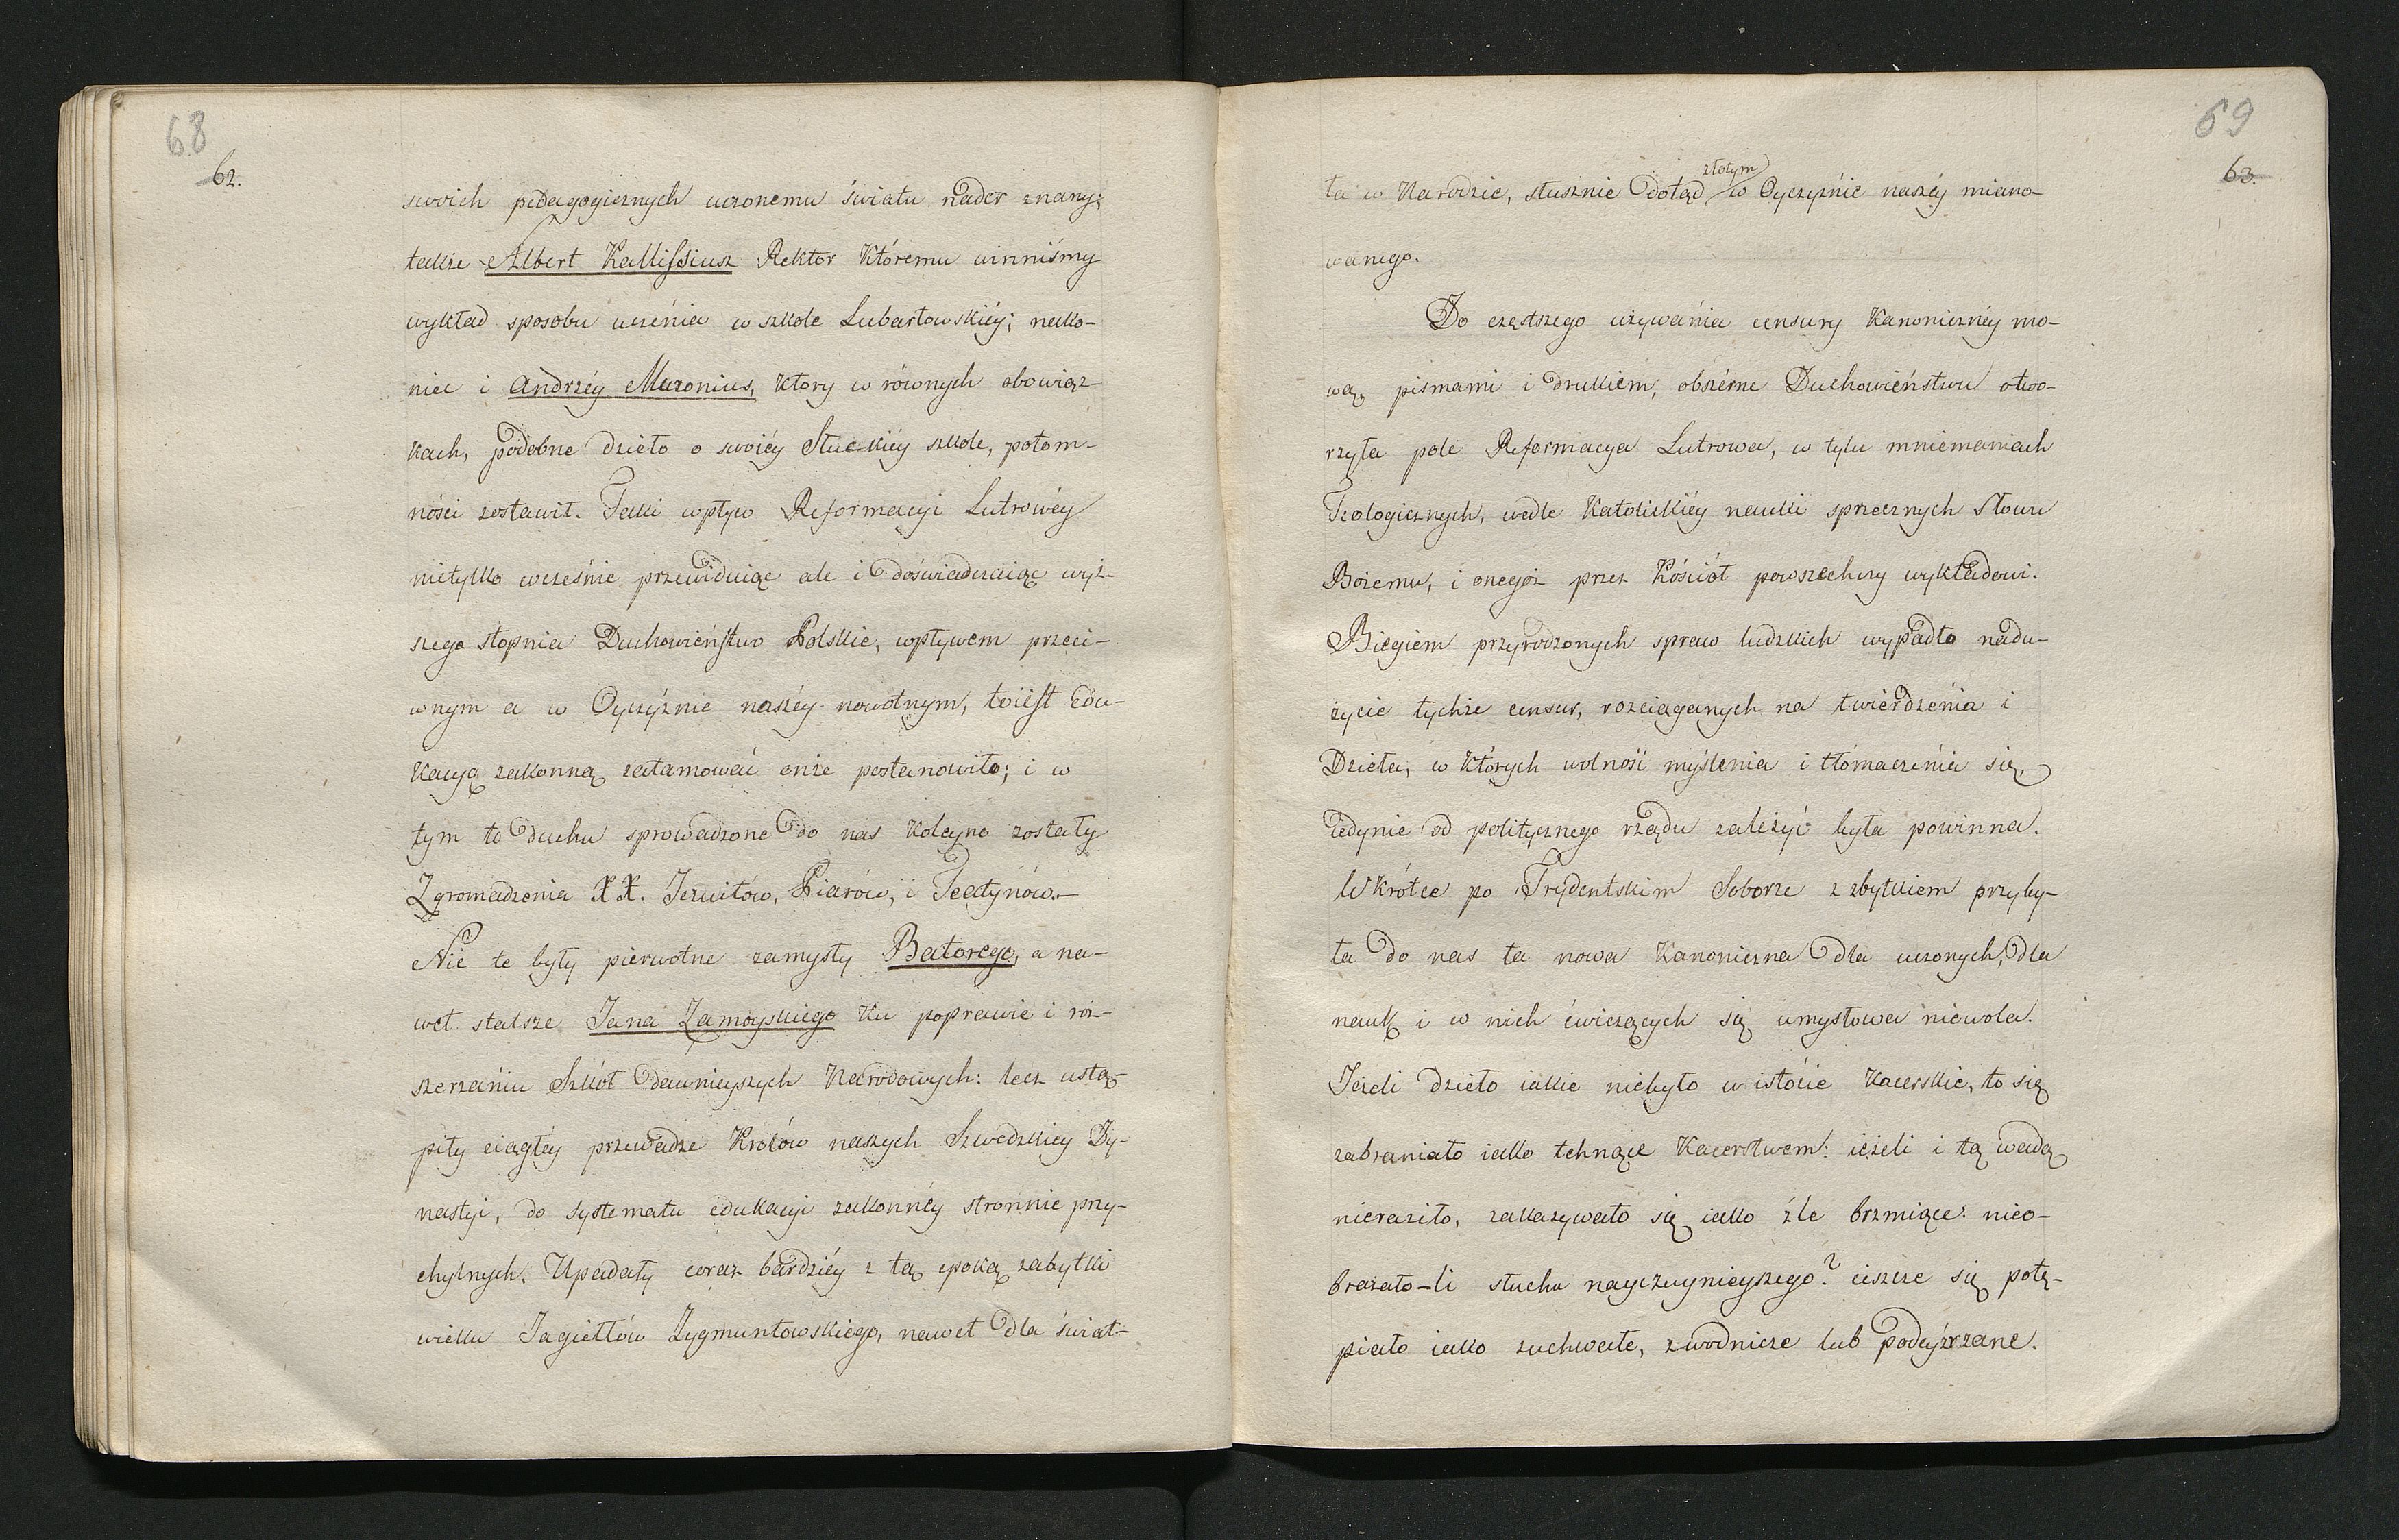 68
62.
swoich pedagogicznych uczonemu światu nader znany;
także Albert Kallissiusz Rektor któremu winniśmy
wykład sposobu uczénia w szkole Lubartowskiéy; nako-
niec i Andrzéy Muzonius, ktory w równych obowiąz-
kach, podobne dzieło o swoiéy Słuckiéy szkole, potom-
ności zostawił. Taki wpływ Reformacyi Lutrowéy
nietylko wcześnie przewiduiąc ale i doświadczaiąc wyż-
szego stopnia Duchowieństwo Polskie, wpływem przeci-
wnym a w Oyczyźnie naszéy nowotnym, toiest edu-
kacyą zakonną zatamować onże postanowiło; i w
tym to duchu sprowadzone do nas koleyno zostały
Zgromadzenia XX. Jezuitów, Piarów, i Teatynów.–
Nie te były pierwotne zamysły Batorego, a na-
wet stalsze Jana Zamoyskiego ku poprawie i roz-
szerzaniu Szkół dawnieyszych Narodowych: lecz ustą-
piły ciągłéy przewadze Królów naszych Szwedzkiey Dy-
nastyi, do systematu edukacyi zakonnéy stronnie przy-
chylnych. Upadały coraz bardziéy z tą epoką zabytki
wieku Jagiełłów Zygmuntowskiego, nawet dla świat-
69
63.
złotym
ła w Narodzie, słusznie dotąd w Oyczyźnie naszéy miano-
wanego.
Do częstszego używania censury Kanonicznéy mo-
wą, pismami i drukiem, obszérne Duchowieństwu otwo-
rzyła pole Reformacya Lutrowa, w tylu mniemaniach
Teologicznych, wedle Katolickiéy nauki sprzecznych Słowu
Bożemu, i onegoż przez Kościół powszechny wykładowi.
Biegiem przyrodzonych spraw ludzkich wypadło nadu-
życie tychże censur, rozciąganych na twierdzénia i
Dzieła, w których wolność myślenia i tłómaczénia się,
iedynie od politycznego rządu zależyć była powinna.
Wkrótce po Trydentskim Soborze z zbytkiem przyby-
ła do nas ta nowa Kanoniczna dla uczonych, dla
nauk i w nich ćwiczących się umysłowa niewola.
Jeżeli dzieło iakie niebyło w istocie Kacerskie, to się
zabraniało iako tchnące Kacerstwem: ieżeli i tą wadą
nieraziło, zakazywało się iako źle brzmiące: nieo-
brażało–li słuchu nayczuynieyszego? ieszcze się potę-
piało iako zuchwałe, zwodnicze lub podeyźrzane.